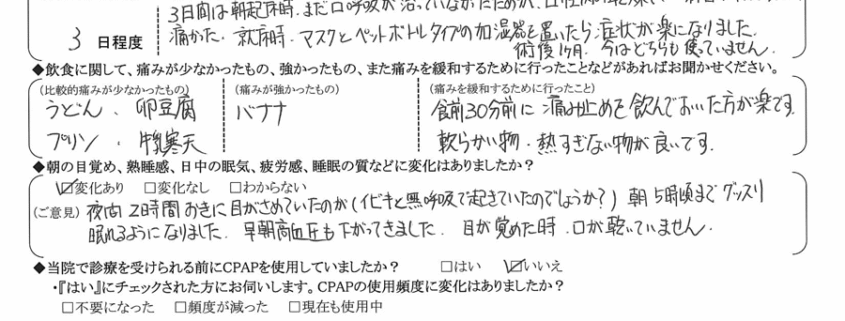 3日間は朝起床時、まだ口呼吸が治っていなかったためか、
3 日程度
痛かた、就床時、マスクとペットボトルタイプの加湿器を置いたら症状が楽になりました。
術後1ヶ月 今はどちらも使っていません。
◆飲食に関して、痛みが少なかったもの、強かったもの、また痛みを緩和するために行ったことなどがあればお聞かせください。
(比較的痛みが少なかったもの) (痛みが強かったもの) (痛みを緩和するために行ったこと)
うどん、卵豆腐 バナナ 食前30分前に痛み止めを飲んでおいた方が楽です
プリン・牛乳寒天 軟らかい物・熱すぎない物が良いです。
◆朝の目覚め、熟睡感、日中の眠気、疲労感、睡眠の質などに変化はありましたか?
☑変化あり □変化なし □わからない
(ご意見) 夜間2時間おきに目がさめていたのが(イビキと無呼吸で起きていたのでしょうか?) 朝5時頃までグッスリ
眠れるようになりました。早朝高血圧も下がってきました。目が覚めた時、口が乾いていません。
◆当院で診療を受けられる前にCPAPを使用していましたか? □はい ☑いいえ
・『はい』にチェックされた方にお伺いします。CPAPの使用頻度に変化はありましたか?
□不要になった □頻度が減った □現在も使用中